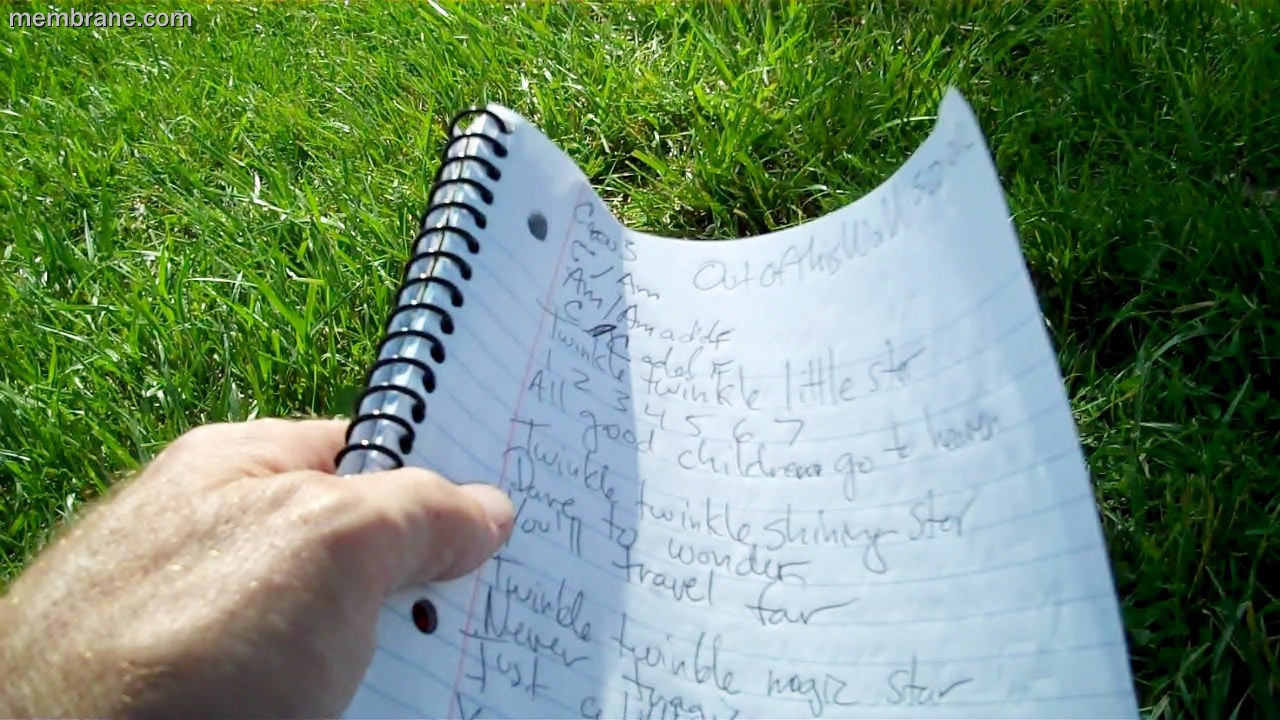 membrane.com
Out of this World
C / Am
Am / Am add F
C add F
Twinkle twinkle little star
1 2 3 4 5 6 7
All good children go to heaven
Twinkle twinkle shining star
Dare to wonder
You'll travel far
Twinkle twinkle magic star
Never
Just a